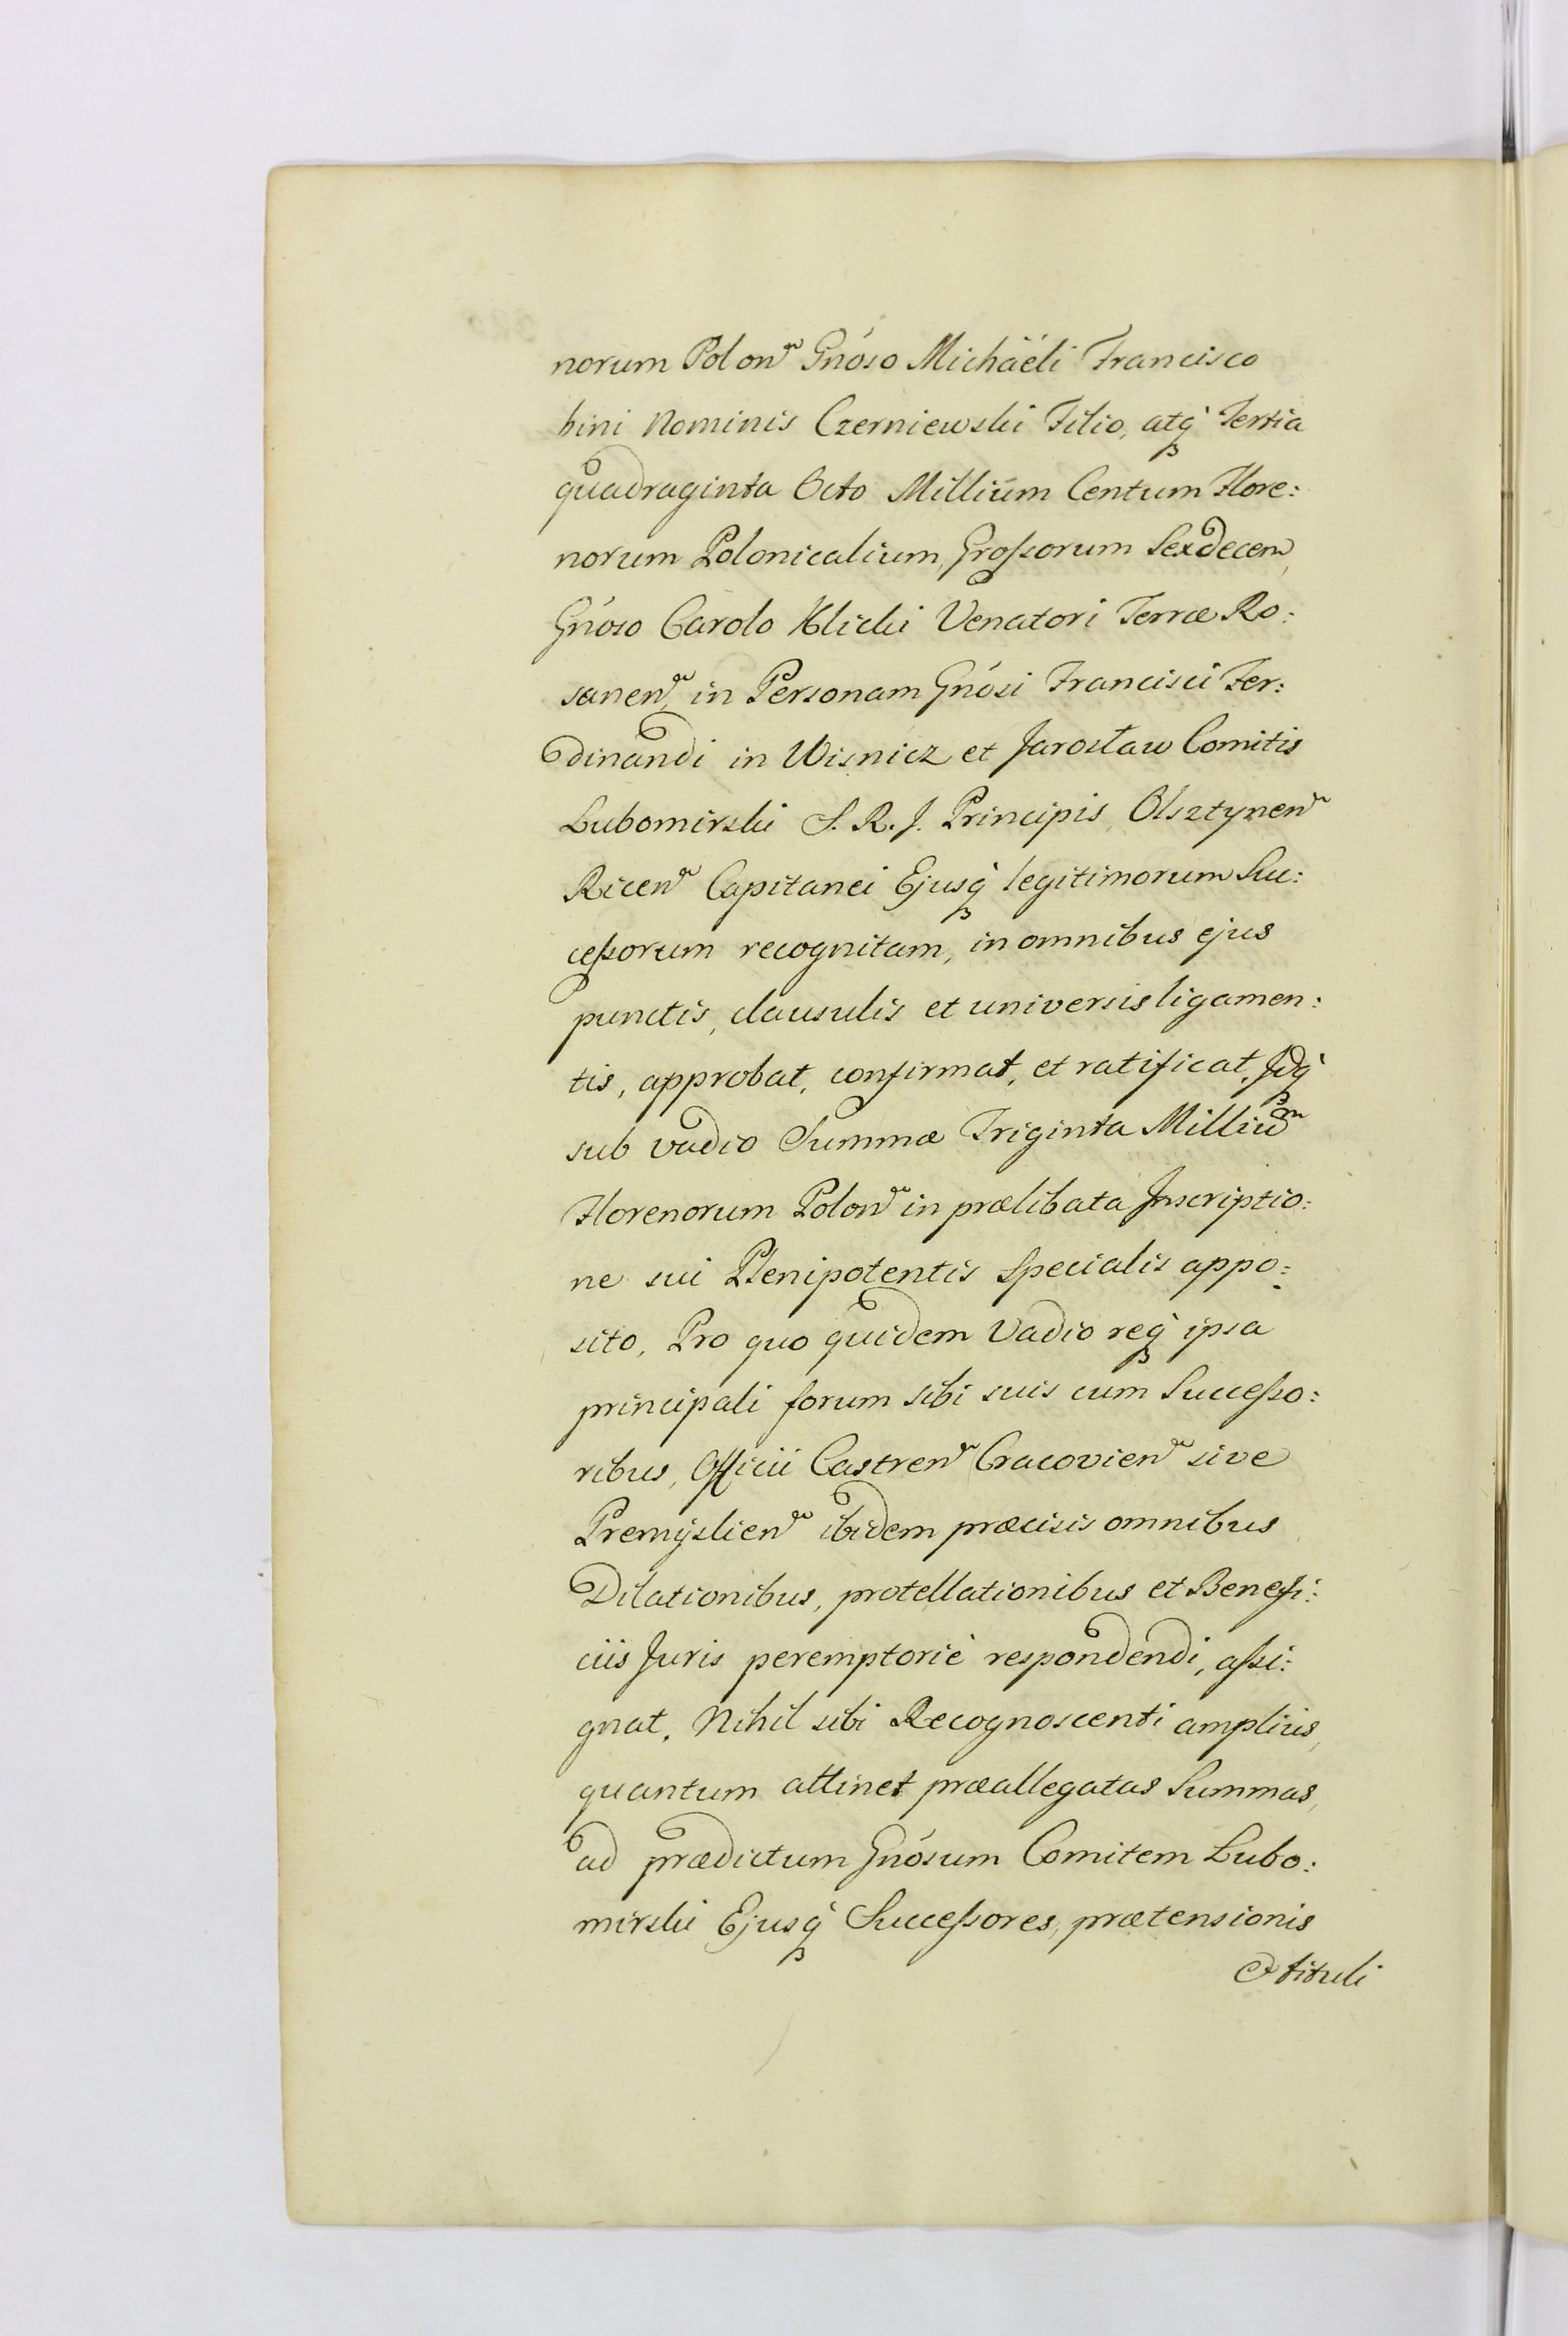 norum Polon̄ Gnóso Michäéli Francisco
bini Nominis Czerniewski Filio, atq̀ Tertia
quadraginta Octo Millium Centum Flore:
norum Polonicalium, Groſsorum Sexdecem,
Gnóso Carolo Klicki Venatori Terræ Ro:
sanen̄, in Personam Gnósi Francisci Fer:
dinandi in Wisnicz et Jarosław Comitis
Lubomirski S. R. J. Principis, Olsztynen̄
Ricen̄ Capitanei Ejusq̀ legitimorum Suc:
ceſsorum recognitam, in omnibus ejus
punctis, clausulis et universis ligamen:
tis, approbat, confirmat, et ratificat, Jdq̀
sub vadio Summæ Triginta Millium
Florenorum Polon̄ in prælibata Jnscriptio:
ne sui Plenipotentis Specialis appo:
sito, Pro quo quidem Vadio req̀ ipsa
principali forum sibi suis cum Succeſso:
ribus, Officii Castren̄ Cracovien̄ sive
Premÿslien̄ ibidem præcisis omnibus
Dilationibus, protellationibus et Benefi:
ciis Juris peremptoriè respondendi, aſsi:
gnat. Nihil sibi Recognoscenti amplius,
quantum attinet præallegatas Summas,
ad prædictum Gnósum Comitem Lubo:
mirski Ejusq̀ Succeſsores, prætensionis
& tituli